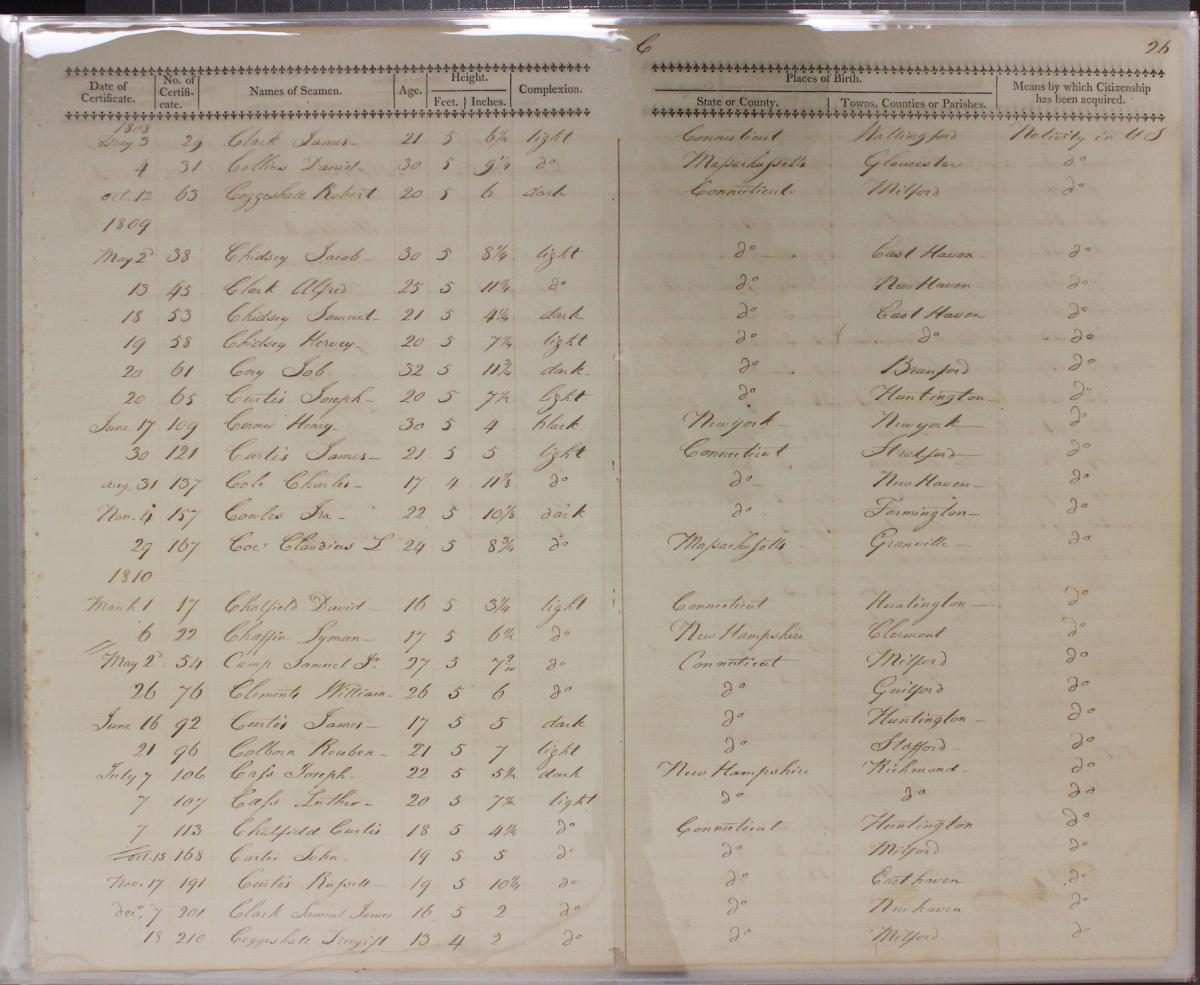 C 26
Date of Certificate. No. of Certifi-cate. Names of Seamen. Age. Height. Feet. Inches. Complexion. Places of Birth. State or County. Towns, Counties or Parishes. Means by which Citizenship has been acquired.
1808
May 3 29 Clark James 21 5 6½ light Connecticut Wallingford Nativity in U S
4 31 Collins Daniel 30 5 9¼ do Massachusetts Gloucester do
Oct. 12 63 Coggeshall Robert 20 5 6 dark Connecticut Milford do
1809
May 2d 38 Chidsey Jacob 30 5 8¼ light do East Haven do
13 45 Clark Alfred 25 5 11½ do do New Haven do
18 53 Chidsey Samuel 21 5 4¼ dark do East Haven do
19 58 Chidsey Hervey 20 5 7¼ light do do do
20 61 Cory Job 32 5 11¾ dark do Branford do
20 65 Curtis Joseph 20 5 7½ light do Huntington do
June 17 109 Henry 30 5 4 black New york New york do
30 121 Curtis James 21 5 5 light Connecticut Stratford do
Aug. 31 137 Cole Charles 17 4 11⅛ do do New Haven do
Nov. 4 157 Cowles Ira 22 5 10⅛ dark do Farmington do
29 167 Coe Claudius L 24 5 8¾ do Massachusetts Granville do
1810
March 1 17 Chatfield David 16 5 3¼ light Connecticut Huntington do
6 22 Chaffin Lyman 17 5 6½ do New Hampshire Clermont do
May 2d 54 Camp Samuel Jr. 27 5 7 9/10 do Connecticut Milford do
26 76 Clements William 26 5 6 do do Guilford do
June 16 92 Curtis James 17 5 5 dark do Huntington do
21 96 Colborn Reuben 21 5 7 light do Stafford do
July 7 106 Cass Joseph 22 5 5½ dark New Hampshire Richmond do
7 107 Cass Luther 20 5 7½ light do do do
7 113 Chatfield Curtis 18 5 4¼ do Connecticut Huntington do
Oct. 15 168 Carter John 19 5 5 do do Milford do
Nov. 17 191 Curtis Russell 19 5 10¼ do do East haven do
Dec. 7 201 Clark Samuel James 16 5 2 do do New haven do
18 210 Coggeshall Freegift 13 4 2 do do Milford do